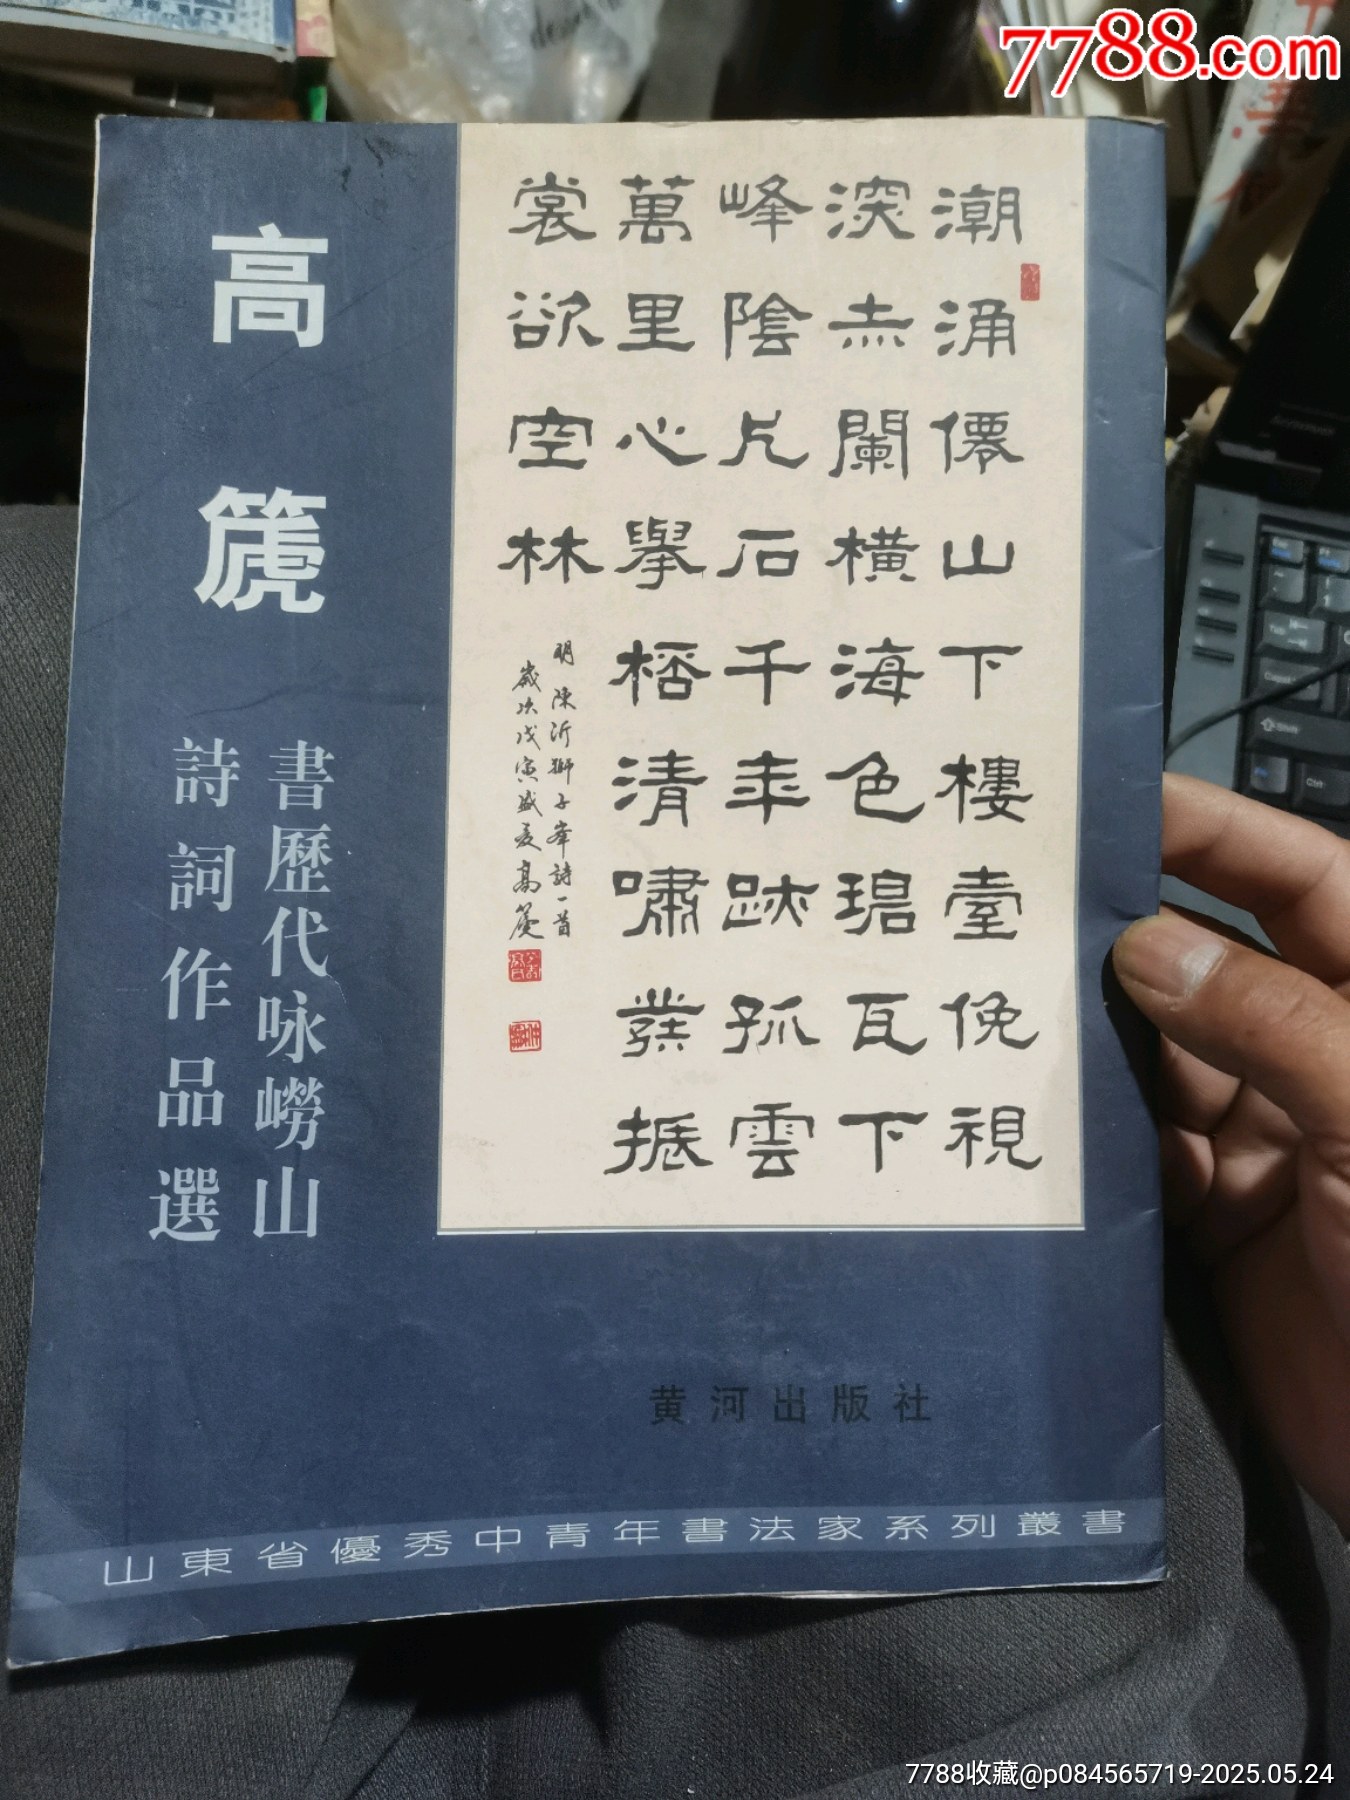 7788.com
高篪
書歷代咏嶗山
詩詞作品選
潮涌僊山下樓臺俛視
深赤闌橫海色琩瓦下
峰陰片石千年跡孤雲
萬里心舉桮清嘯發振
裳欲空林
明陳沂獅子峯詩一首
歲次戊寅盛夏高篪
黄河出版社
山東省優秀中青年書法家系列叢書
7788收藏@p084565719-2025.05.24